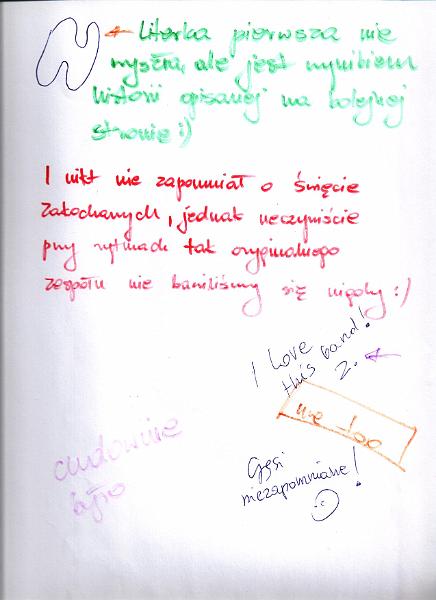 N ← Literka pierwsza nie
wyszła, ale jest wynikiem
historii opisanej na kolejnej
stronie :)
I nikt nie zapomniał o święcie
zakochanych, jednak rzeczywiście
przy rytmach tak oryginalnego
zespołu nie bawiliśmy się nigdy :)
I Love
this band!
2. ←
me too
Gęsi
niezapomniane!
cudownie
było